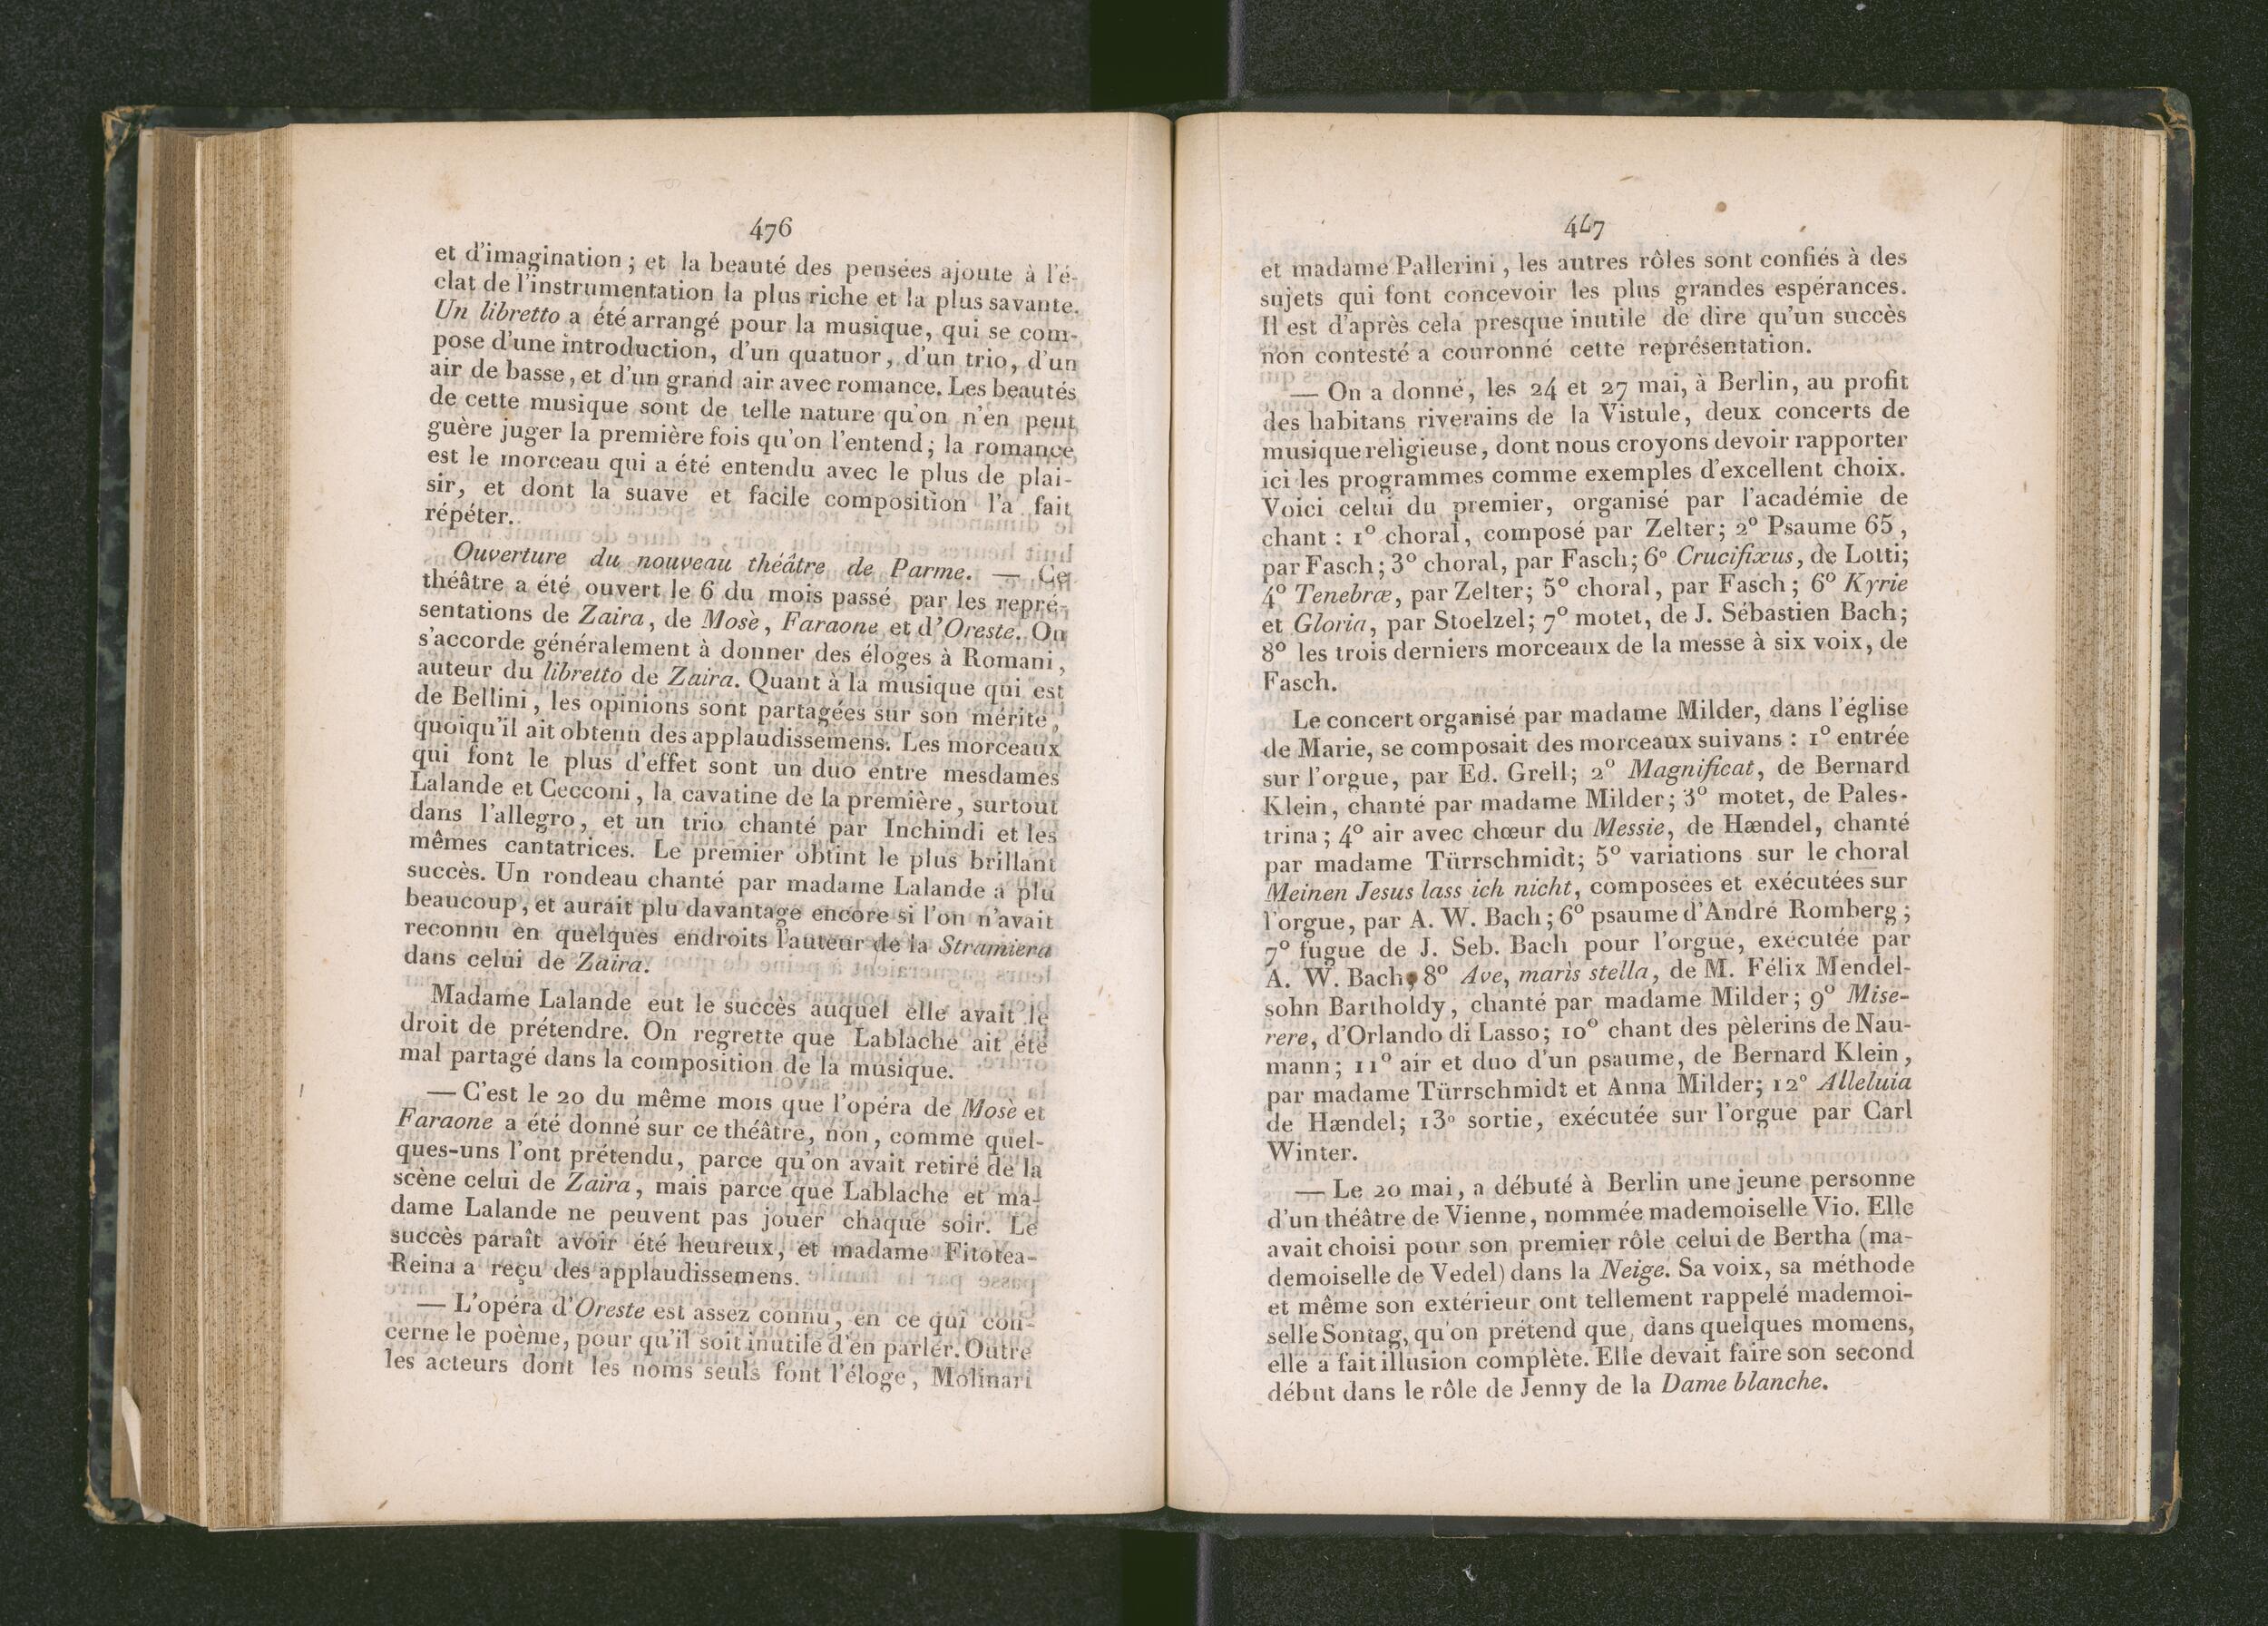 476
et d'imagination ; et la beauté des pensées ajoute à l'é-
clat de l'instrumentation la plus riche et la plus savante.
Un libretto a été arrangé pour la musique, qui se com-
pose d'une introduction, d'un quatuor, d'un trio, d'un
air de basse, et d'un grand air avec romance. Les beautés
de cette musique sont de telle nature qu'on n'en peut
guère juger la première fois qu'on l'entend ; la romance
est le morceau qui a été entendu avec le plus de plai-
sir, et dont la suave et facile composition l'a fait
répéter.
Ouverture du nouveau théâtre de Parme. — Ce
théâtre a été ouvert le 6 du mois passé par les repré-
sentations de Zaira, de Mosè, Faraone et d'Oreste. On
s'accorde généralement à donner des éloges à Romani,
auteur du libretto de Zaira. Quant à la musique qui est
de Bellini, les opinions sont partagées sur son mérite,
quoiqu'il ait obtenu des applaudissemens. Les morceaux
qui font le plus d'effet sont un duo entre mesdames
Lalande et Cecconi, la cavatine de la première, surtout
dans l'allegro, et un trio chanté par Inchindi et les
mêmes cantatrices. Le premier obtint le plus brillant
succès. Un rondeau chanté par madame Lalande a plu
beaucoup, et aurait plu davantage encore si l'on n'avait
reconnu en quelques endroits l'auteur de la Stramiera
dans celui de Zaira.
Madame Lalande eut le succès auquel elle avait le
droit de prétendre. On regrette que Lablache ait été
mal partagé dans la composition de la musique.
— C'est le 20 du même mois que l'opéra de Mosè et
Faraone a été donné sur ce théâtre, non, comme quel-
ques-uns l'ont prétendu, parce qu'on avait retiré de la
scène celui de Zaira, mais parce que Lablache et ma-
dame Lalande ne peuvent pas jouer chaque soir. Le
succès paraît avoir été heureux, et madame Fitotea-
Reina a reçu des applaudissemens.
— L'opéra d'Oreste est assez connu, en ce qui con-
cerne le poème, pour qu'il soit inutile d'en parler. Outre
les acteurs dont les noms seuls font l'éloge, Molinari
447
et madame Pallerini, les autres rôles sont confiés à des
sujets qui font concevoir les plus grandes espérances.
Il est d'après cela presque inutile de dire qu'un succès
non contesté a couronné cette représentation.
— On a donné, les 24 et 27 mai, à Berlin, au profit
des habitans riverains de la Vistule, deux concerts de
musique religieuse, dont nous croyons devoir rapporter
ici les programmes comme exemples d'excellent choix.
Voici celui du premier, organisé par l'académie de
chant : 1° choral, composé par Zelter ; 2° Psaume 65,
par Fasch ; 3° choral, par Fasch ; 6° Crucifixus, de Lotti ;
4° Tenebræ, par Zelter ; 5° choral, par Fasch ; 6° Kyrie
et Gloria, par Stoelzel ; 7° motet, de J. Sébastien Bach ;
8° les trois derniers morceaux de la messe à six voix, de
Fasch.
Le concert organisé par madame Milder, dans l'église
de Marie, se composait des morceaux suivans : 1° entrée
sur l'orgue, par Ed. Grell ; 2° Magnificat, de Bernard
Klein, chanté par madame Milder ; 3° motet, de Pales-
trina ; 4° air avec chœur du Messie, de Hændel, chanté
par madame Türrschmidt ; 5° variations sur le choral
Meinen Jesus lass ich nicht, composées et exécutées sur
l'orgue, par A. W. Bach ; 6° psaume d'André Romberg ;
7° fugue de J. Seb. Bach pour l'orgue, exécutée par
A. W. Bach ; 8° Ave, maris stella, de M. Félix Mendel-
sohn Bartholdy, chanté par madame Milder ; 9° Mise-
rere, d'Orlando di Lasso ; 10° chant des pèlerins de Nau-
mann ; 11° air et duo d'un psaume, de Bernard Klein,
par madame Türrschmidt et Anna Milder ; 12° Alleluia
de Hændel ; 13° sortie, exécutée sur l'orgue par Carl
Winter.
— Le 20 mai, a débuté à Berlin une jeune personne
d'un théâtre de Vienne, nommée mademoiselle Vio. Elle
avait choisi pour son premier rôle celui de Bertha (ma-
demoiselle de Vedel) dans la Neige. Sa voix, sa méthode
et même son extérieur ont tellement rappelé mademoi-
selle Sontag, qu'on prétend que, dans quelques momens,
elle a fait illusion complète. Elle devait faire son second
début dans le rôle de Jenny de la Dame blanche.